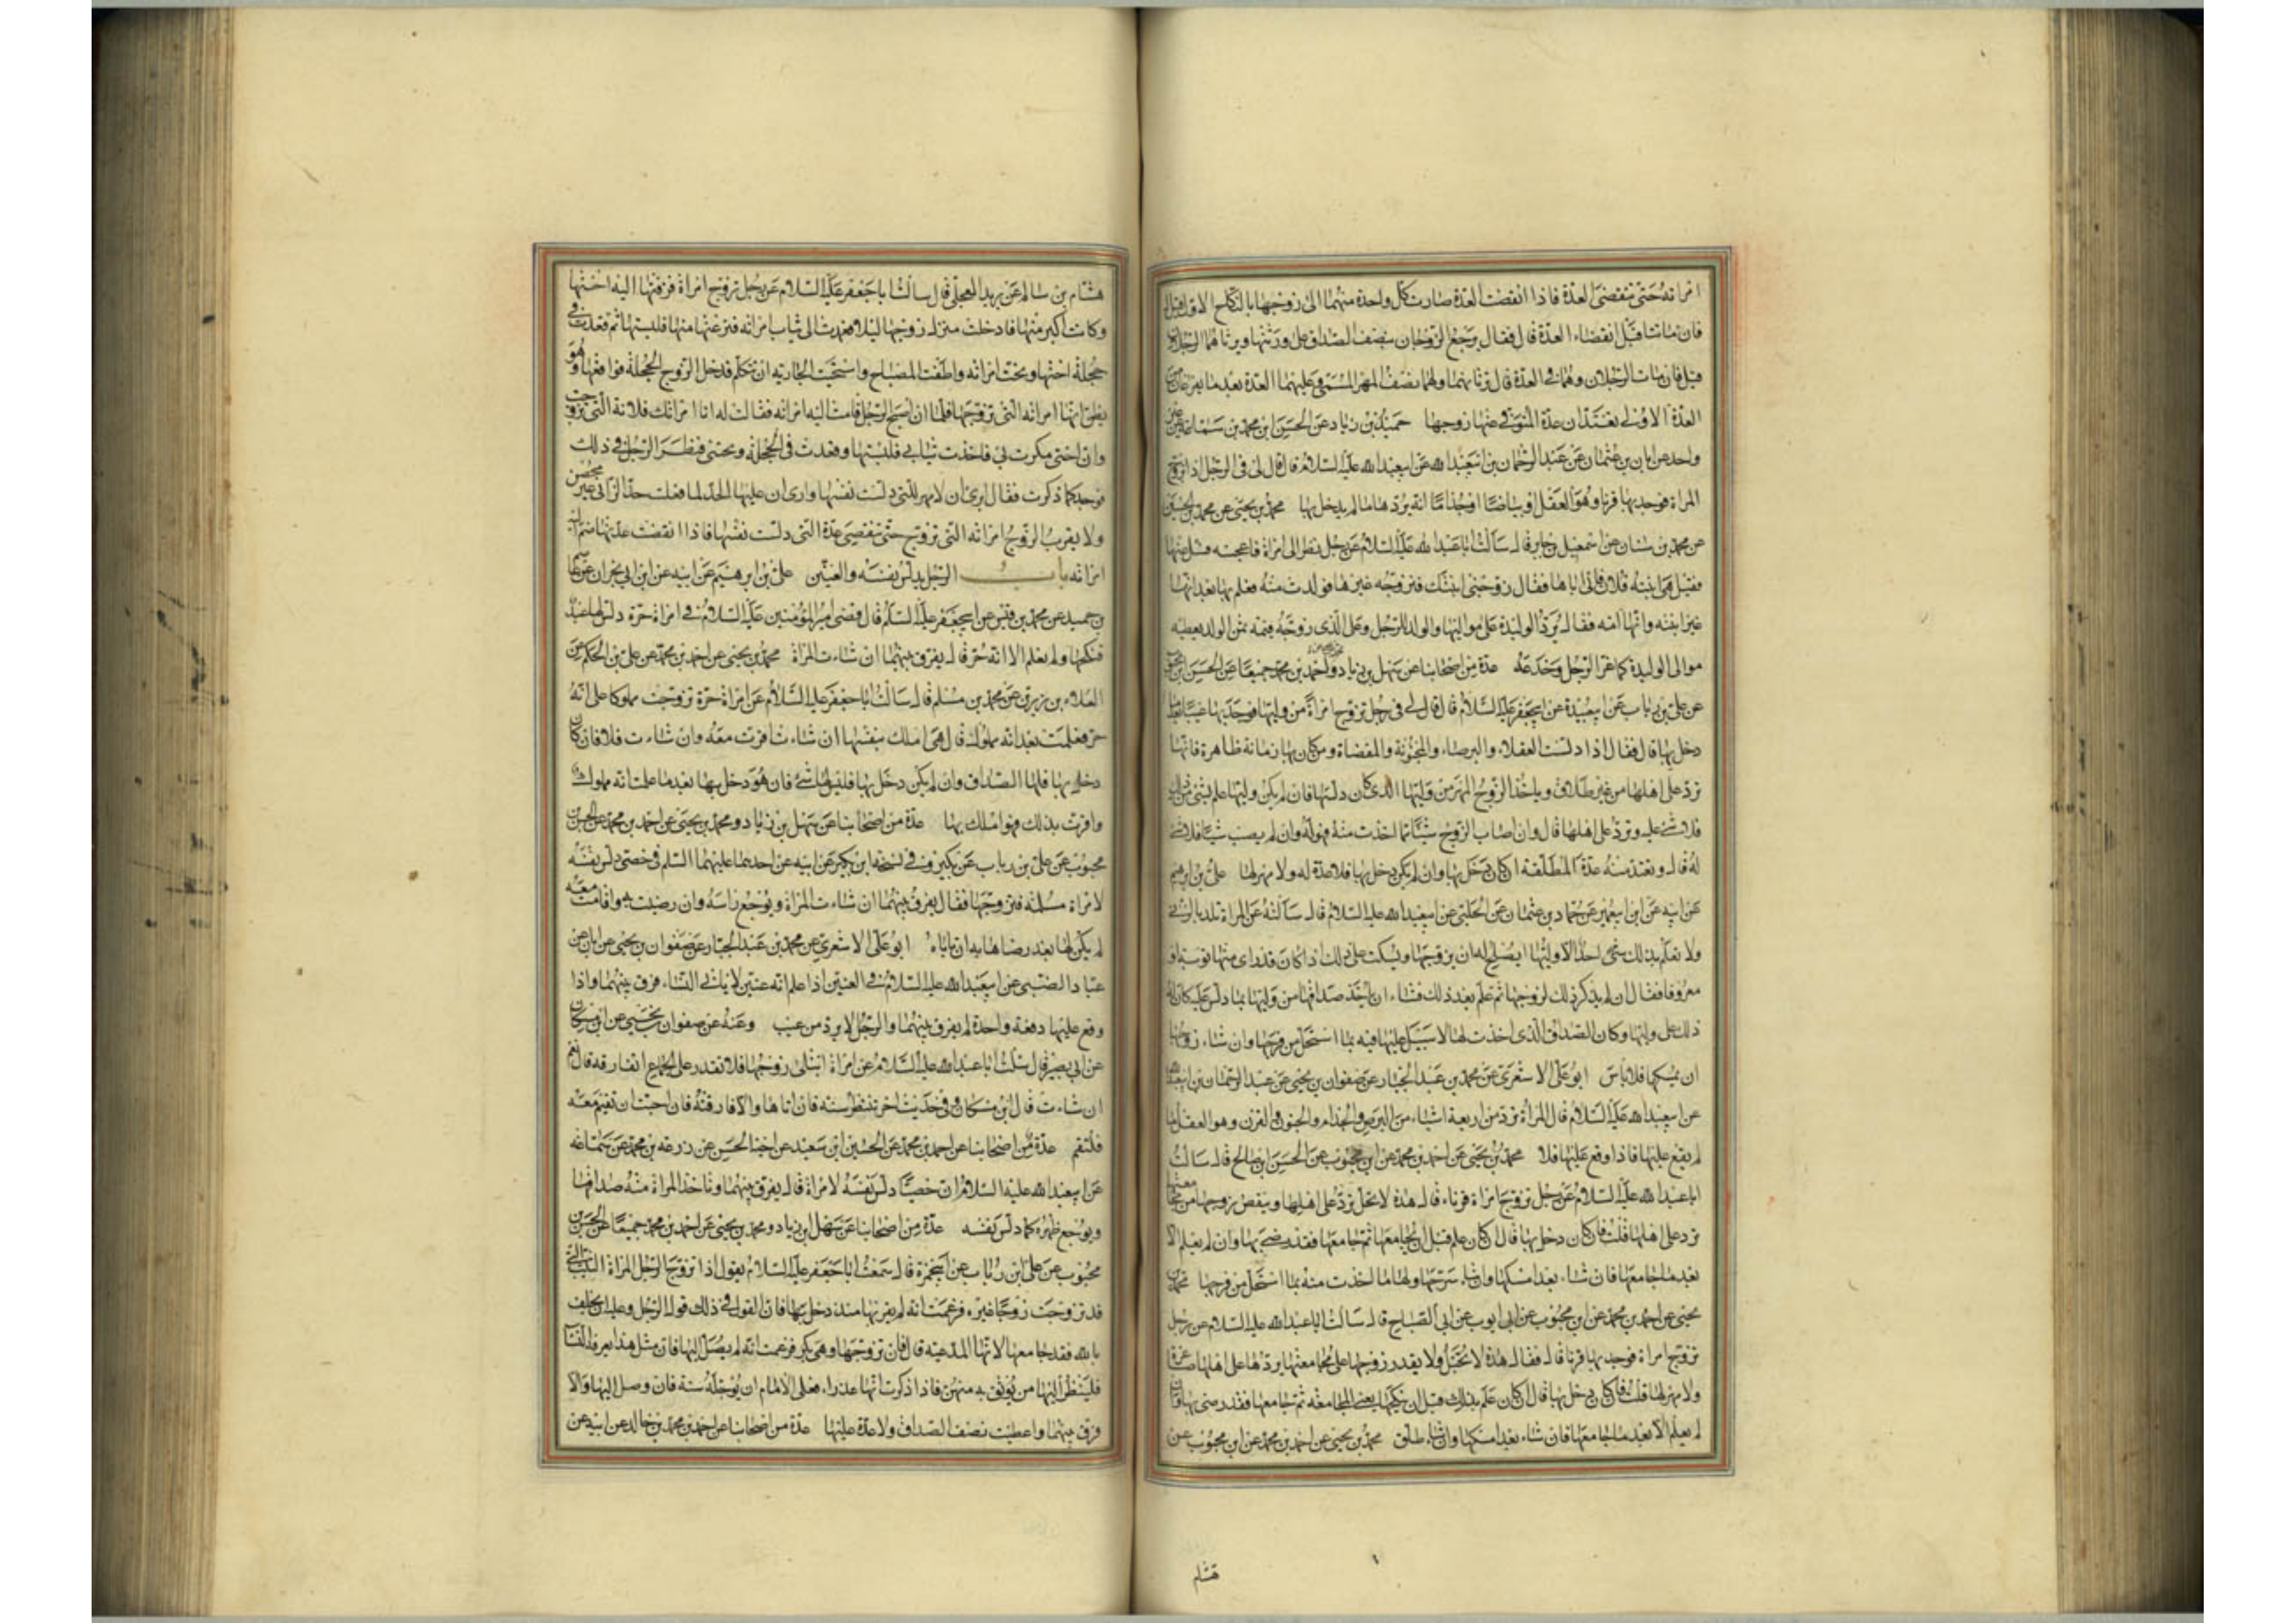 امراته حتى تنقضى العدة فاذا انقضت العدة صارت كل واحدة منهما الى زوجها بالنكاح الاول قيل له
فان ماتتا قبل انقضاء العدة قال فقال يرجع الزوجان بنصف الصداق على ورثتها ويرثانهما الرجلان
قيل فان مات الرجلان وهما فى العدة قال ترثانهما ولهما نصف المهر المسمى وعليهما العدة بعد ما تفرغان من
العدة الاولى تعتدان عدة المتوفى عنها زوجها حميد بن زياد عن الحسن ابن محمد بن سماعة عن غير
واحد عن ابان بن عثمان عن عبد الرحمان بن ابيعبدالله عن ابيعبدالله عليه السلام قال قال لى فى الرجل اذا تزوج
المراة فوجد بها قرنا وهو العفل او بياضا او جذاما انه يردها ما لم يدخل بها محمد بن يحيى عن محمد بن الحسين
عن محمد بن سنان عن اسمعيل بن جابر قال سالت ابا عبد الله عليه السلام عن رجل نظر الى امراة فاعجبته فسئل عنها
فقيل هى ابنة فلان فاتى اباها فقال زوجنى ابنتك فزوجه غيرها فولدت منه فعلم بها بعد انها
غير ابنته وانها امه فقال يرد الوليدة على مواليها والولد للرجل وعلى الذى زوجه قيمة ثمن الولد يعطيه
موالى الوليدة كما غر الرجل وخدعه عدة من اصحابنا عن سهل بن زياد واحمد بن محمد جميعا عن الحسن بن محبوب
عن على بن رياب عن ابيعبيدة عن ابيجعفر عليه السلام قال قال لى فى رجل تزوج امراة من وليها فوجد بها عيبا بعد ما
دخل بها قال فقال اذا دلست العفلاء والبرصاء والمجنونة والمفضاة ومن كان بها زمانة ظاهرة فانها
ترد على اهلها من غير طلاق وياخذ الزوج المهر من وليها الذى كان دلسها فان لم يكن وليها علم بشئ من ذلك
فلا شئ عليه وترد على اهلها قال وان اصاب الزوج شيئا مما اخذت منه فهو له وان لم يصب شيئا فلا شئ
له قال وتعتد منه عدة المطلقة ان كان دخل بها وان لم يكن دخل بها فلا عدة له ولا مهر لها على بن ابرهيم
عن ابيه عن ابن ابيعمير عن حماد بن عثمان عن الحلبى عن ابيعبدالله عليه السلام قال سالته عن المراة تلد بالزنى
ولا تعلم بذلك احد الا وليها ايصلح له ان يزوجها ويسكت على ذلك اذا كان قد راى منها توبة او
معروفا فقال ان لم يذكر ذلك لزوجها ثم علم بعد ذلك فشاء ان ياخذ صداقها من وليها بما دلس عليه كان له
ذلك على وليها وكان الصداق الذى اخذت لها لا سبيل عليها فيه بما استحل من فرجها وان شاء زوجها
ان يمسكها فلا باس ابو على الاشعرى عن محمد بن عبد الجبار عن صفوان بن يحيى عن عبد الرحمان بن ابيعبدالله
عن ابيعبدالله عليه السلام قال المراة ترد من اربعة اشياء من البرص والجذام والجنون والقرن وهو العفل ما
لم يقع عليها فاذا وقع عليها فلا محمد بن يحيى عن احمد بن محمد عن ابن محبوب عن الحسن ابن صالح قال سالت
ابا عبد الله عليه السلام عن رجل تزوج امراة قرناء قال هذه لا تحبل ترد على اهلها وينقبض زوجها من مجامعتها
ترد على اهلها قلت فان كان دخل بها قال ان كان علم قبل ان يجامعها ثم جامعها فقد رضى بها وان لم يعلم الا
بعد ما جامعها فان شاء بعد امسكها وان شاء سرحها ولها ما اخذت منه بما استحل من فرجها محمد بن
يحيى عن احمد بن محمد عن ابن محبوب عن ابى ايوب عن ابى الصباح قال سالت ابا عبد الله عليه السلام عن رجل
تزوج امراة فوجد بها قرنا قال فقال هذه لا تحبل ولا يقدر زوجها على مجامعتها يردها على اهلها صاغرة
ولا مهر لها قلت فان كان دخل بها قال ان كان علم بذلك قبل ان ينكحها يعنى المجامعة ثم جامعها فقد رضى بها وان
لم يعلم الا بعد ما جامعها فان شاء بعد امسكها وان شاء طلق محمد بن يحيى عن احمد بن محمد عن ابن محبوب عن
هشام
هشام بن سالم عن بريد العجلى قال سالت ابا جعفر عليه السلام عن رجل تزوج امراة فزفتها اليه اختها
وكانت اكبر منها فادخلت منزل زوجها ليلا فعمدت الى ثياب امراته فنزعتها منها فلبستها ثم قعدت فى
حجلة اختها ونحت امراته واطفت المصباح واستحيت الجارية ان تتكلم فدخل الزوج الحجلة فواقعها وهو
يظن انها امراته التى تزوجها فلما ان اصبح الرجل قامت اليه امراته فقالت له انا امراتك فلانة التى تزوجت
وان اختى مكرت بى فاخذت ثيابى فلبستها وقعدت فى الحجلة ونحتنى فنظر الرجل فى ذلك
فوجد كما ذكرت فقال ارى ان لا مهر للتى دلست نفسها وارى ان عليها الحد لما فعلت حد الزانى غير محصن
ولا يقرب الزوج امراته التى تزوج حتى تنقضى عدة التى دلست نفسها فاذا انقضت عدتها ضم اليه
امراته باب الرجل يدلس نفسه والعنين على بن ابرهيم عن ابيه عن ابن ابى نجران عن عاصم
بن حميد عن محمد بن قيس عن ابيجعفر عليه السلم قال قضى امير المؤمنين عليه السلام فى امراة حرة دلس لها عبد
فنكحها ولم تعلم الا انه حر قال يفرق بينهما ان شاءت المراة محمد بن يحيى عن احمد بن محمد عن على بن الحكم عن
العلاء بن رزين عن محمد بن مسلم قال سالت ابا جعفر عليه السلام عن امراة حرة تزوجت مملوكا على انه
حر فعلمت بعد انه مملوك قال هى املك بنفسها ان شاءت اقرت معه وان شاءت فلا فان كان
دخل بها فلها الصداق وان لم يكن دخل بها فليس لها شئ فان هو دخل بها بعد ما علمت انه مملوك
واقرت بذلك فهو املك بها عدة من اصحابنا عن سهل بن زياد ومحمد بن يحيى عن احمد بن محمد عن الحسن بن
محبوب عن على بن رياب عن بكير وفى نسخة ابن بكير عن ابيه عن احدهما عليهما السلم فى خصى دلس نفسه
لامراة مسلمة فتزوجها فقال يفرق بينهما ان شاءت المراة ويوجع راسه وان رضيت به واقامت معه
لم يكن لها بعد رضاها به ان تاباه ابو على الاشعرى عن محمد بن عبد الجبار عن صفوان بن يحيى عن ابان عن
عباد الضبى عن ابيعبدالله عليه السلام فى العنين اذا علم انه عنين لا ياتى النساء فرق بينهما واذا
وقع عليها دفعة واحدة لم يفرق بينهما والرجل لا يرد من عيب وعنه عن صفوان بن يحيى عن ابن مسكان
عن ابى بصير قال سئلت ابا عبدالله عليه السلام عن امراة ابتلى زوجها فلا تقدر على الجماع اتفارقه قال نعم
ان شاءت قال ابن مسكان وفى حديث اخر تنتظر سنة فان اتاها والا فارقته فان احبت ان تقيم معه
فلتقم عدة من اصحابنا عن احمد بن محمد عن الحسين ابن سعيد عن اخيه الحسن عن زرعة بن محمد عن سماعة
عن ابيعبدالله عليه السلام ان خصيا دلس نفسه لامراة قال يفرق بينهما وتاخذ المراة منه صداقها
ويوجع ظهره كما دلس نفسه عدة من اصحابنا عن سهل ابن زياد ومحمد بن يحيى عن احمد بن محمد جميعا عن الحسن بن
محبوب عن على ابن رياب عن ابيحمزة قال سمعت ابا جعفر عليه السلام يقول اذا تزوج الرجل المراة الثيب التى
قد تزوجت زوجا غيره فزعمت انه لم يقربها منذ دخل بها فان القول فى ذلك قول الرجل وعليه ان يحلف
بالله لقد جامعها لانها المدعية قال فان تزوجها وهى بكر فزعمت انه لم يصل اليها فان مثل هذا يعرف النساء
فلينظر اليها من يوثق به منهن فاذا ذكرت انها عذراء فعلى الامام ان يؤجله سنة فان وصل اليها والا
فرق بينهما واعطيت نصف الصداق ولا عدة عليها عدة من اصحابنا عن احمد بن محمد بن خالد عن ابيه عن